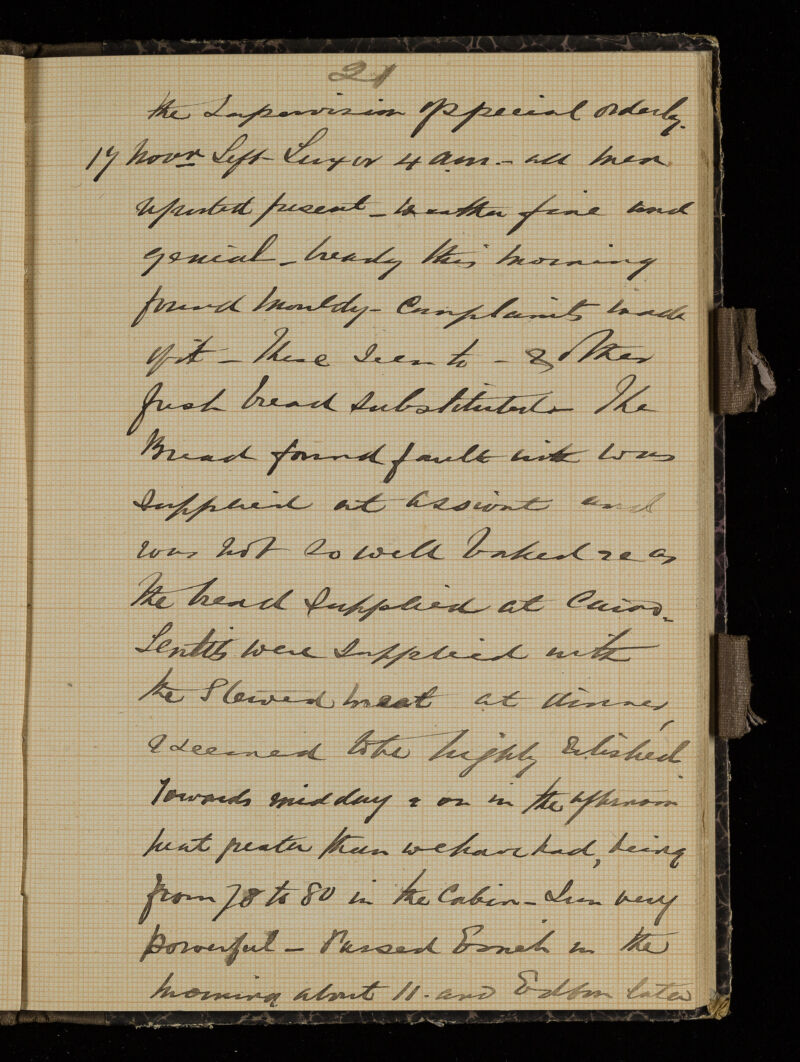 21
the Supervision of special orderly.
17 Novr Left Luxor 4 am - all men
reported present - weather fine and
genial - bread this morning
found mouldy - Complaints made
of it - These seen to - & other
fresh bread substituted - The
Bread found fault with was
supplied at Assiout and
was not so well baked as
the bread supplied at Cairo -
Lentils were supplied with
the Stewed meat at dinner,
& seemed to be highly relished
Towards midday & on in the afternoon
heat greater than we have had, being
from 78 to 80 in the Cabin - Sun very
powerful - Passed Esneh in the
morning about 11. and Edfou later